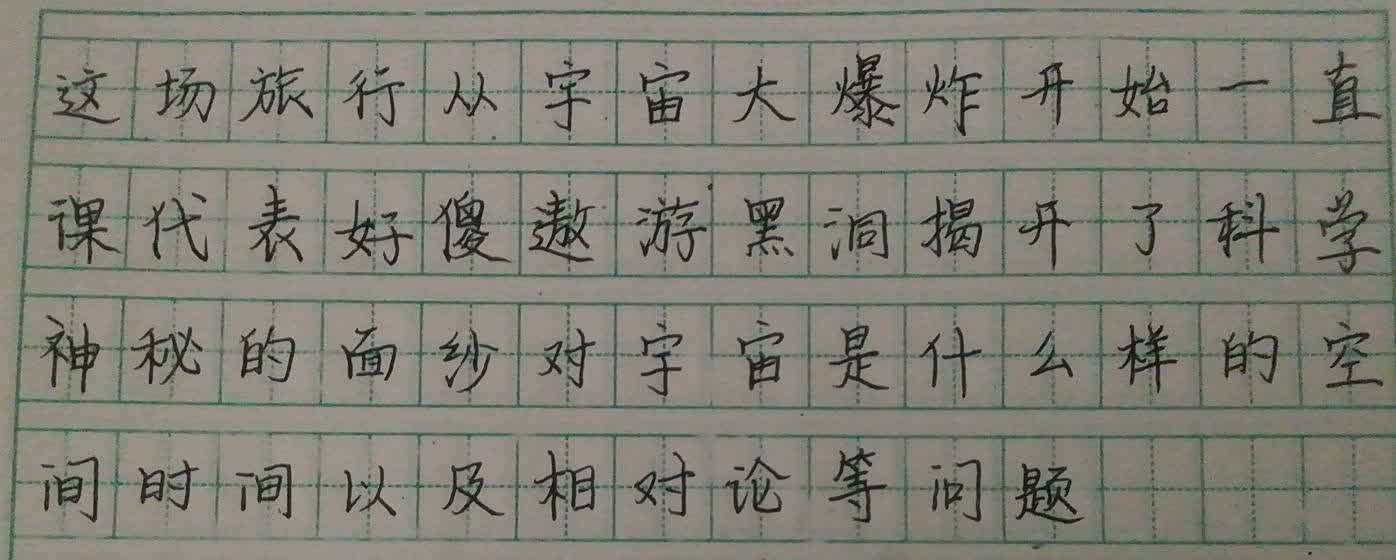 这场旅行从宇宙大爆炸开始一直
课代表好傻遨游黑洞揭开了科学
神秘的面纱对宇宙是什么样的空
间时间以及相对论等问题